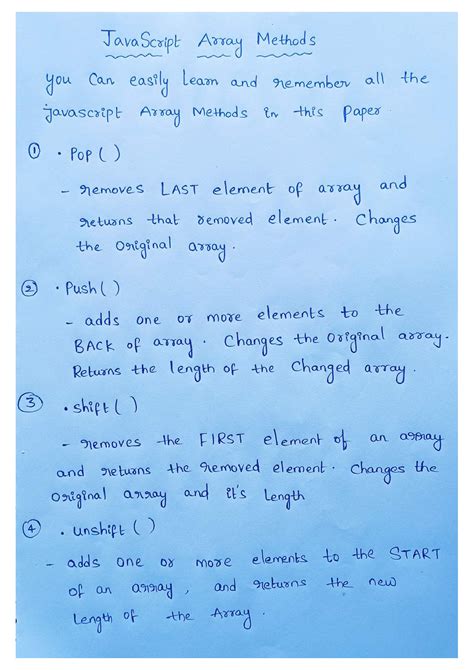 JavaScript Array Methods
you can easily learn and remember all the
javascript Array Methods in this Paper
① . Pop ( )
- removes LAST element of array and
returns that removed element. Changes
the original array.
② . Push ( )
- adds one or more elements to the
BACK of array. Changes the original array.
Returns the length of the changed array.
③ . shift ( )
- removes the FIRST element of an array
and returns the removed element. Changes the
original array and it's Length
④ . unshift ( )
- adds one or more elements to the START
of an array, and returns the new
Length of the Array.